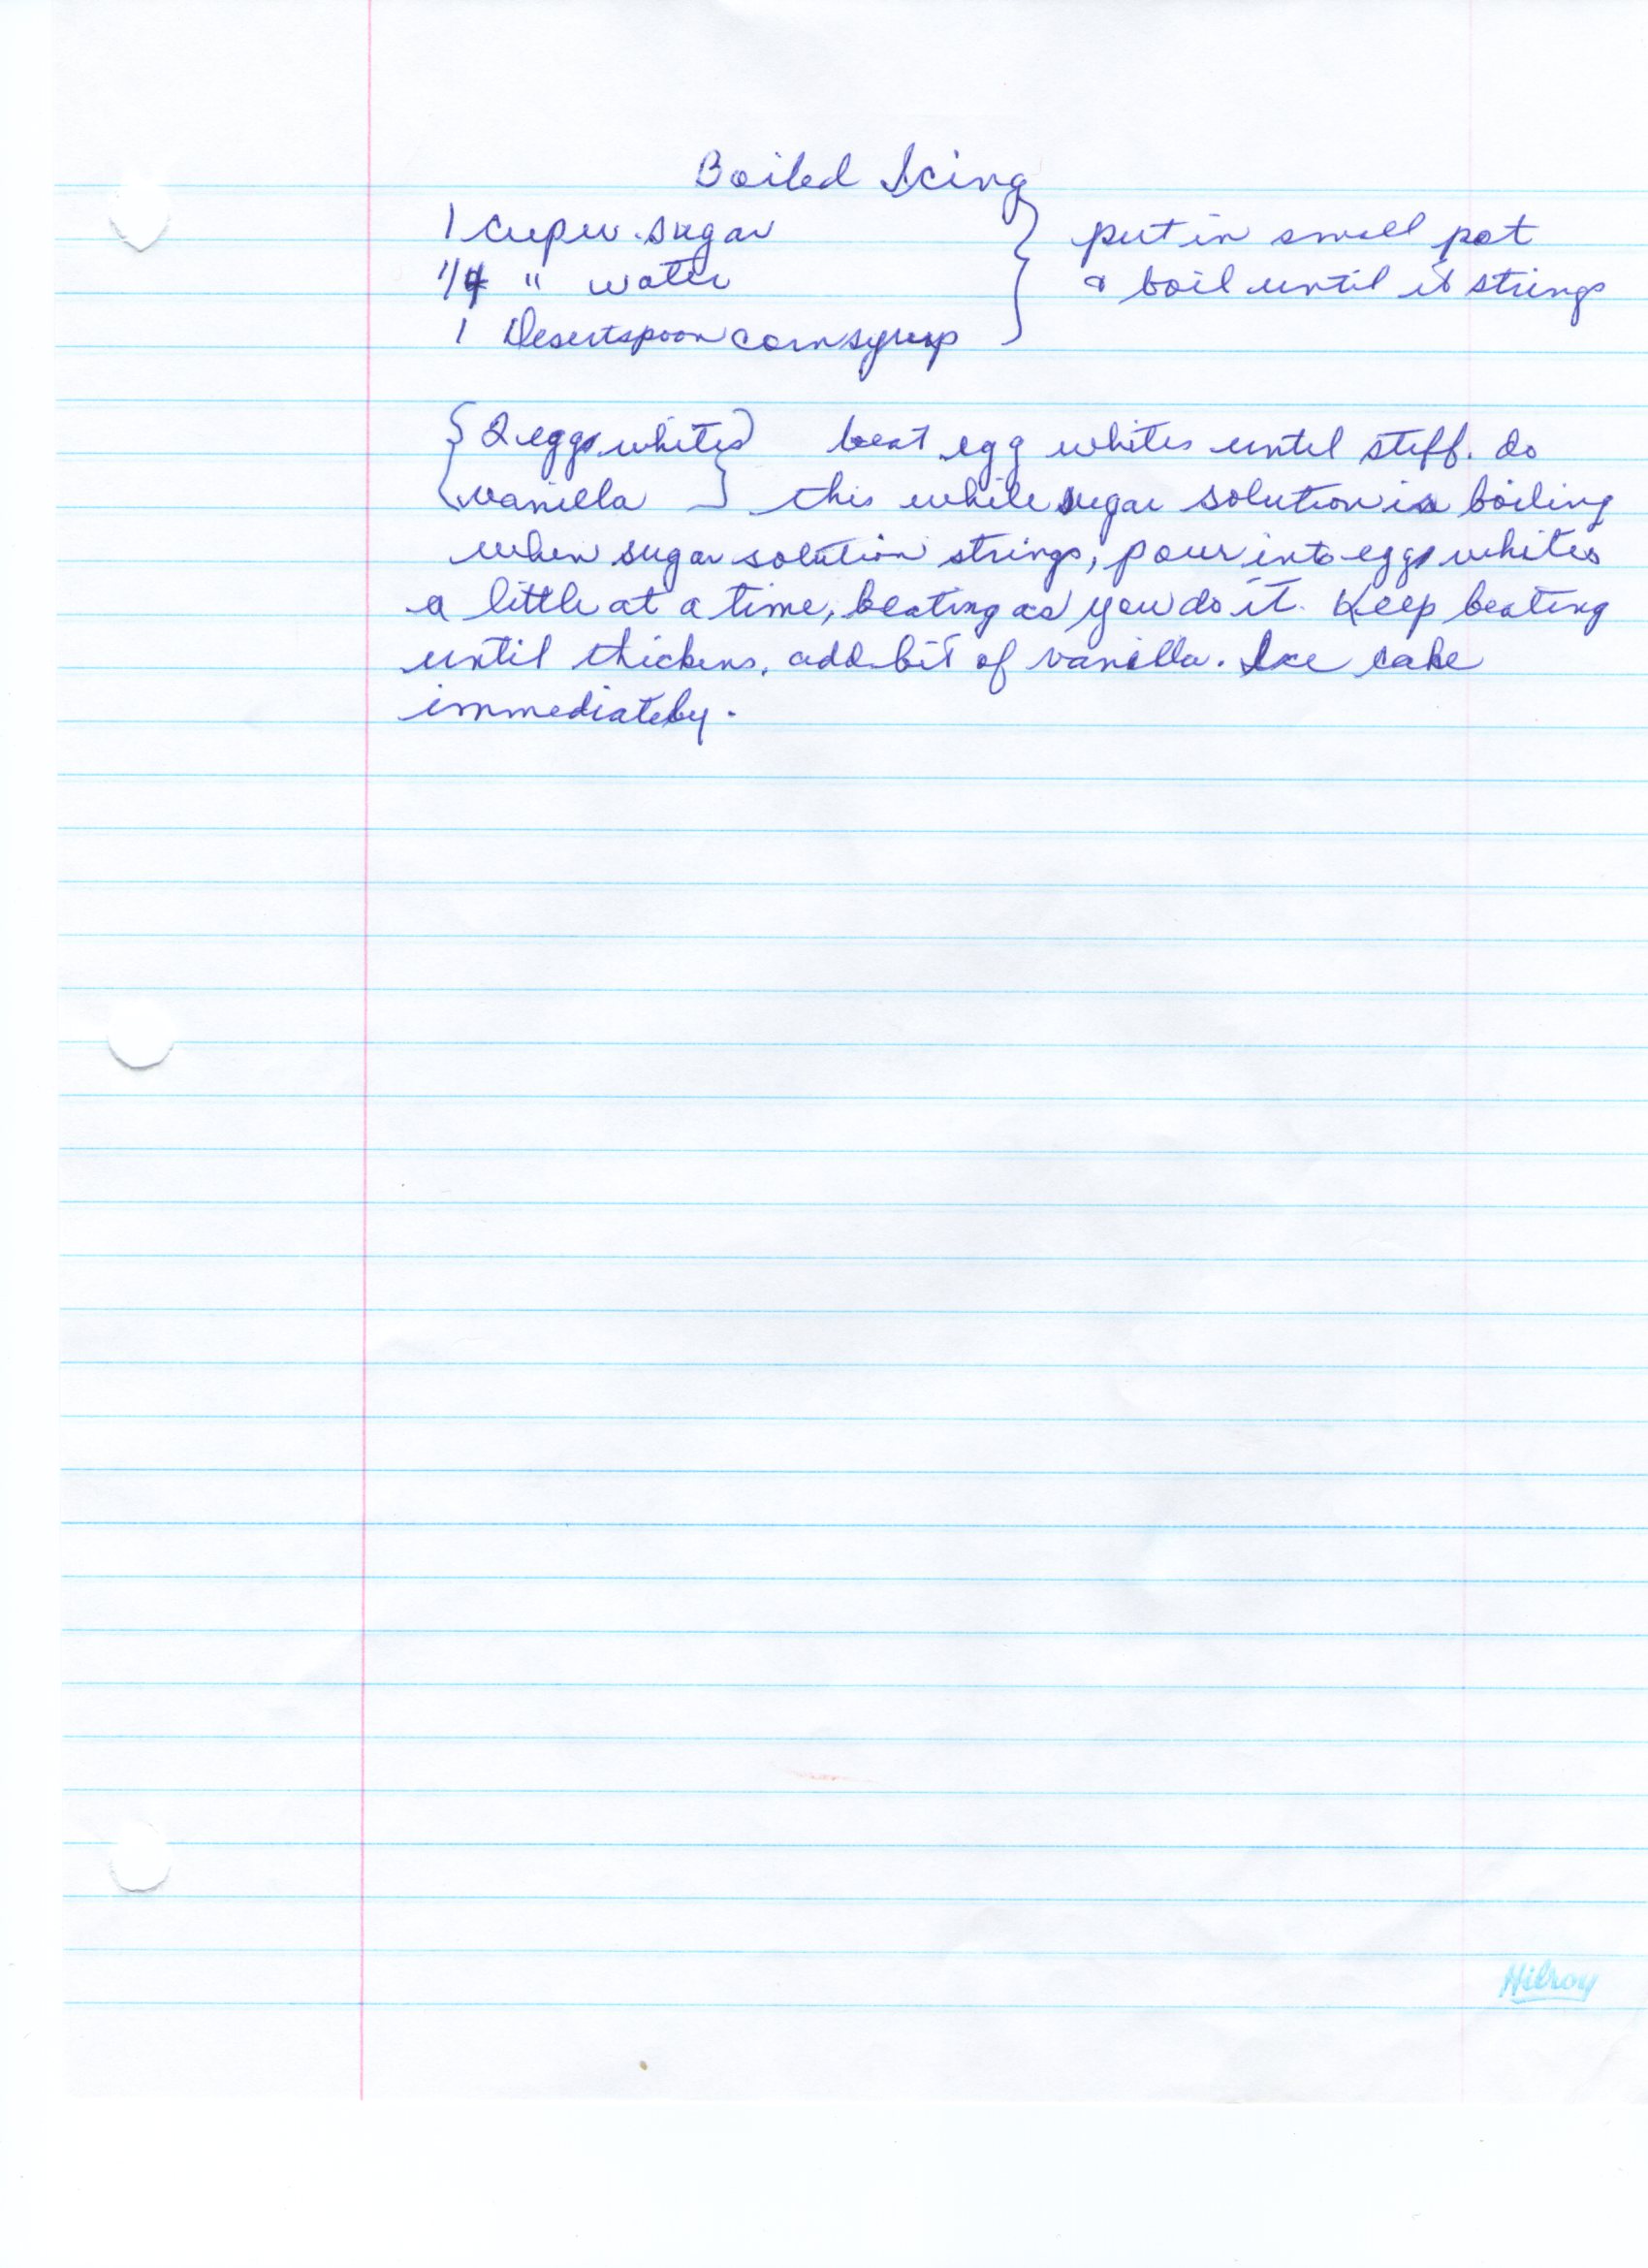 Boiled Icing
1 cup w. sugar } put in small pot
1/4 " water } & boil until it strings
1 Desertspoon corn syrup }
{ 2 eggs whites } beat egg whites until stiff. do
{ vanilla } this while sugar solution is boiling
when sugar solution strings, pour into eggs whites
a little at a time, beating as you do it. Keep beating
until thickens. add bit of vanilla. Ice cake
immediately.
Hilroy